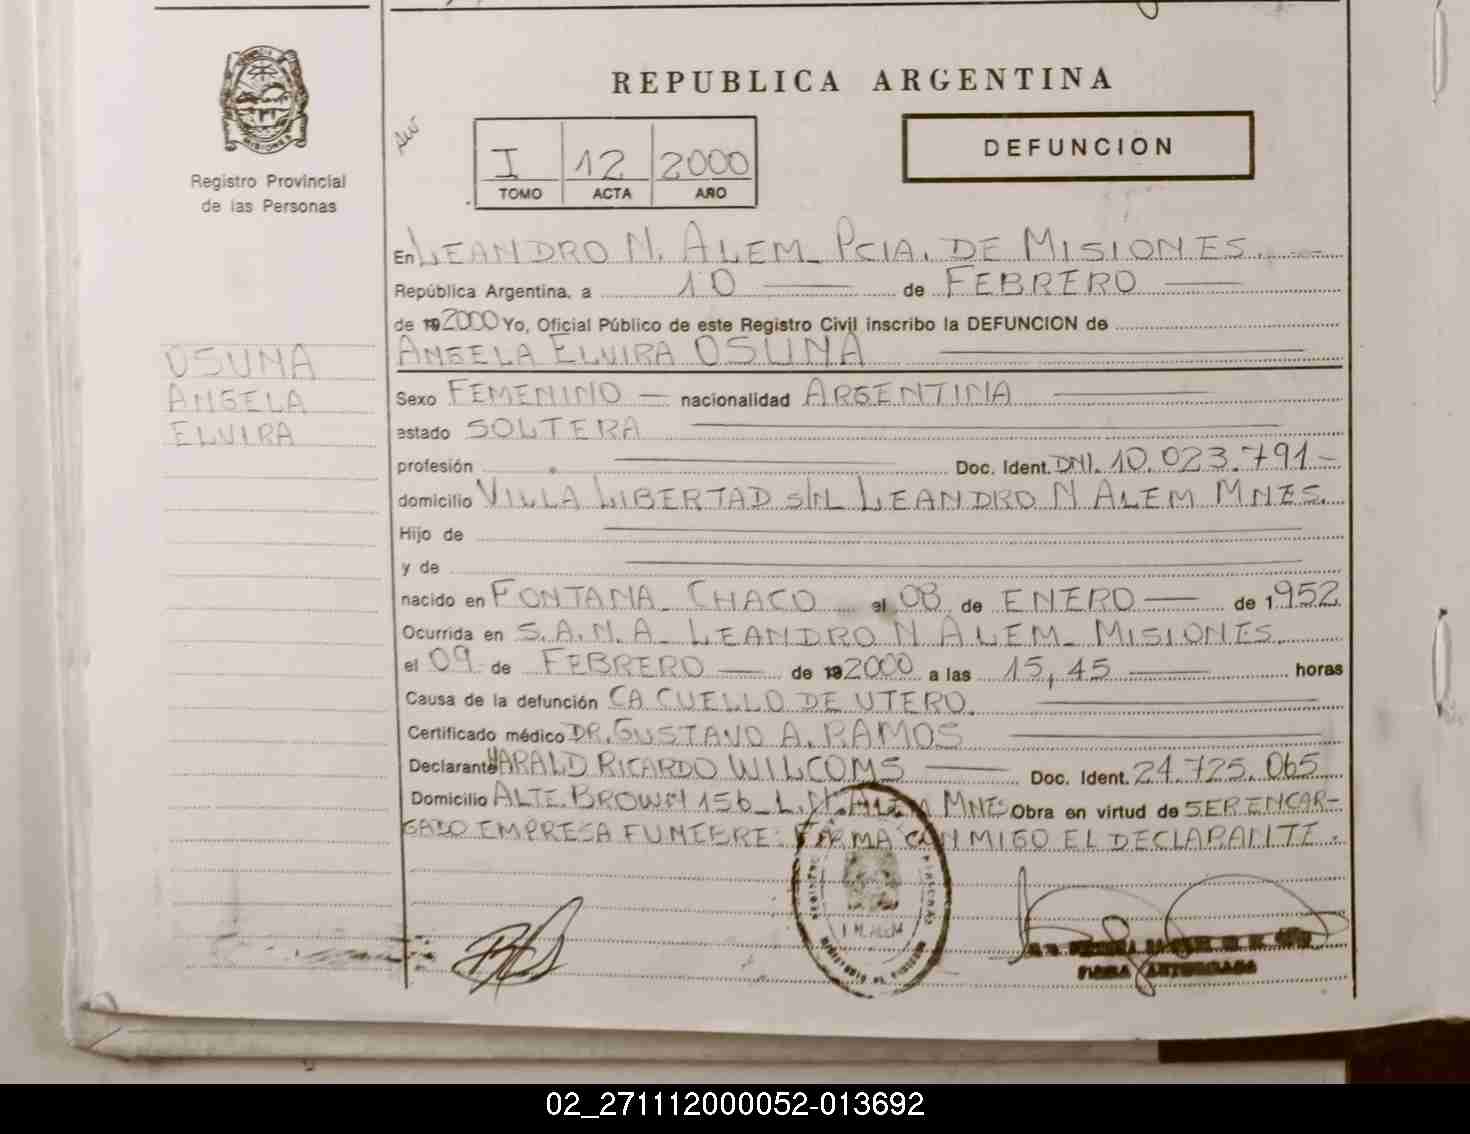 REPUBLICA ARGENTINA
MISIONES
Registro Provincial
de las Personas
I 12 2000
TOMO ACTA AÑO
DEFUNCION
En LEANDRO N. ALEM_ PCIA. DE MISIONES
República Argentina, a 10 de FEBRERO
de 19 2000 Yo, Oficial Público de este Registro Civil inscribo la DEFUNCION de
ANGELA ELVIRA OSUNA
OSUNA
ANGELA
ELVIRA
Sexo FEMENINO — nacionalidad ARGENTINA
estado SOLTERA
profesión Doc. Ident. DNI. 10.023.791-
domicilio VILLA LIBERTAD S/N LEANDRO N ALEM MNES.
Hijo de
y de
nacido en FONTANA_ CHACO el 08 de ENERO — de 1952
Ocurrida en S.A.M.A_ LEANDRO N ALEM_ MISIONES
el 09 de FEBRERO — de 19 2000 a las 15,45 horas
Causa de la defunción CA CUELLO DE UTERO.
Certificado médico DR. GUSTAVO A. RAMOS
Declarante HARALD RICARDO WILCOMS — Doc. Ident. 24.725.065
Domicilio ALTE. BROWN 156_ L.N. ALEM MNES Obra en virtud de SER ENCAR-
GADO EMPRESA FUNEBRE: FIRMA CONMIGO EL DECLARANTE.
L. N. ALEM
FIRMA AUTORIZADA
02_271112000052-013692